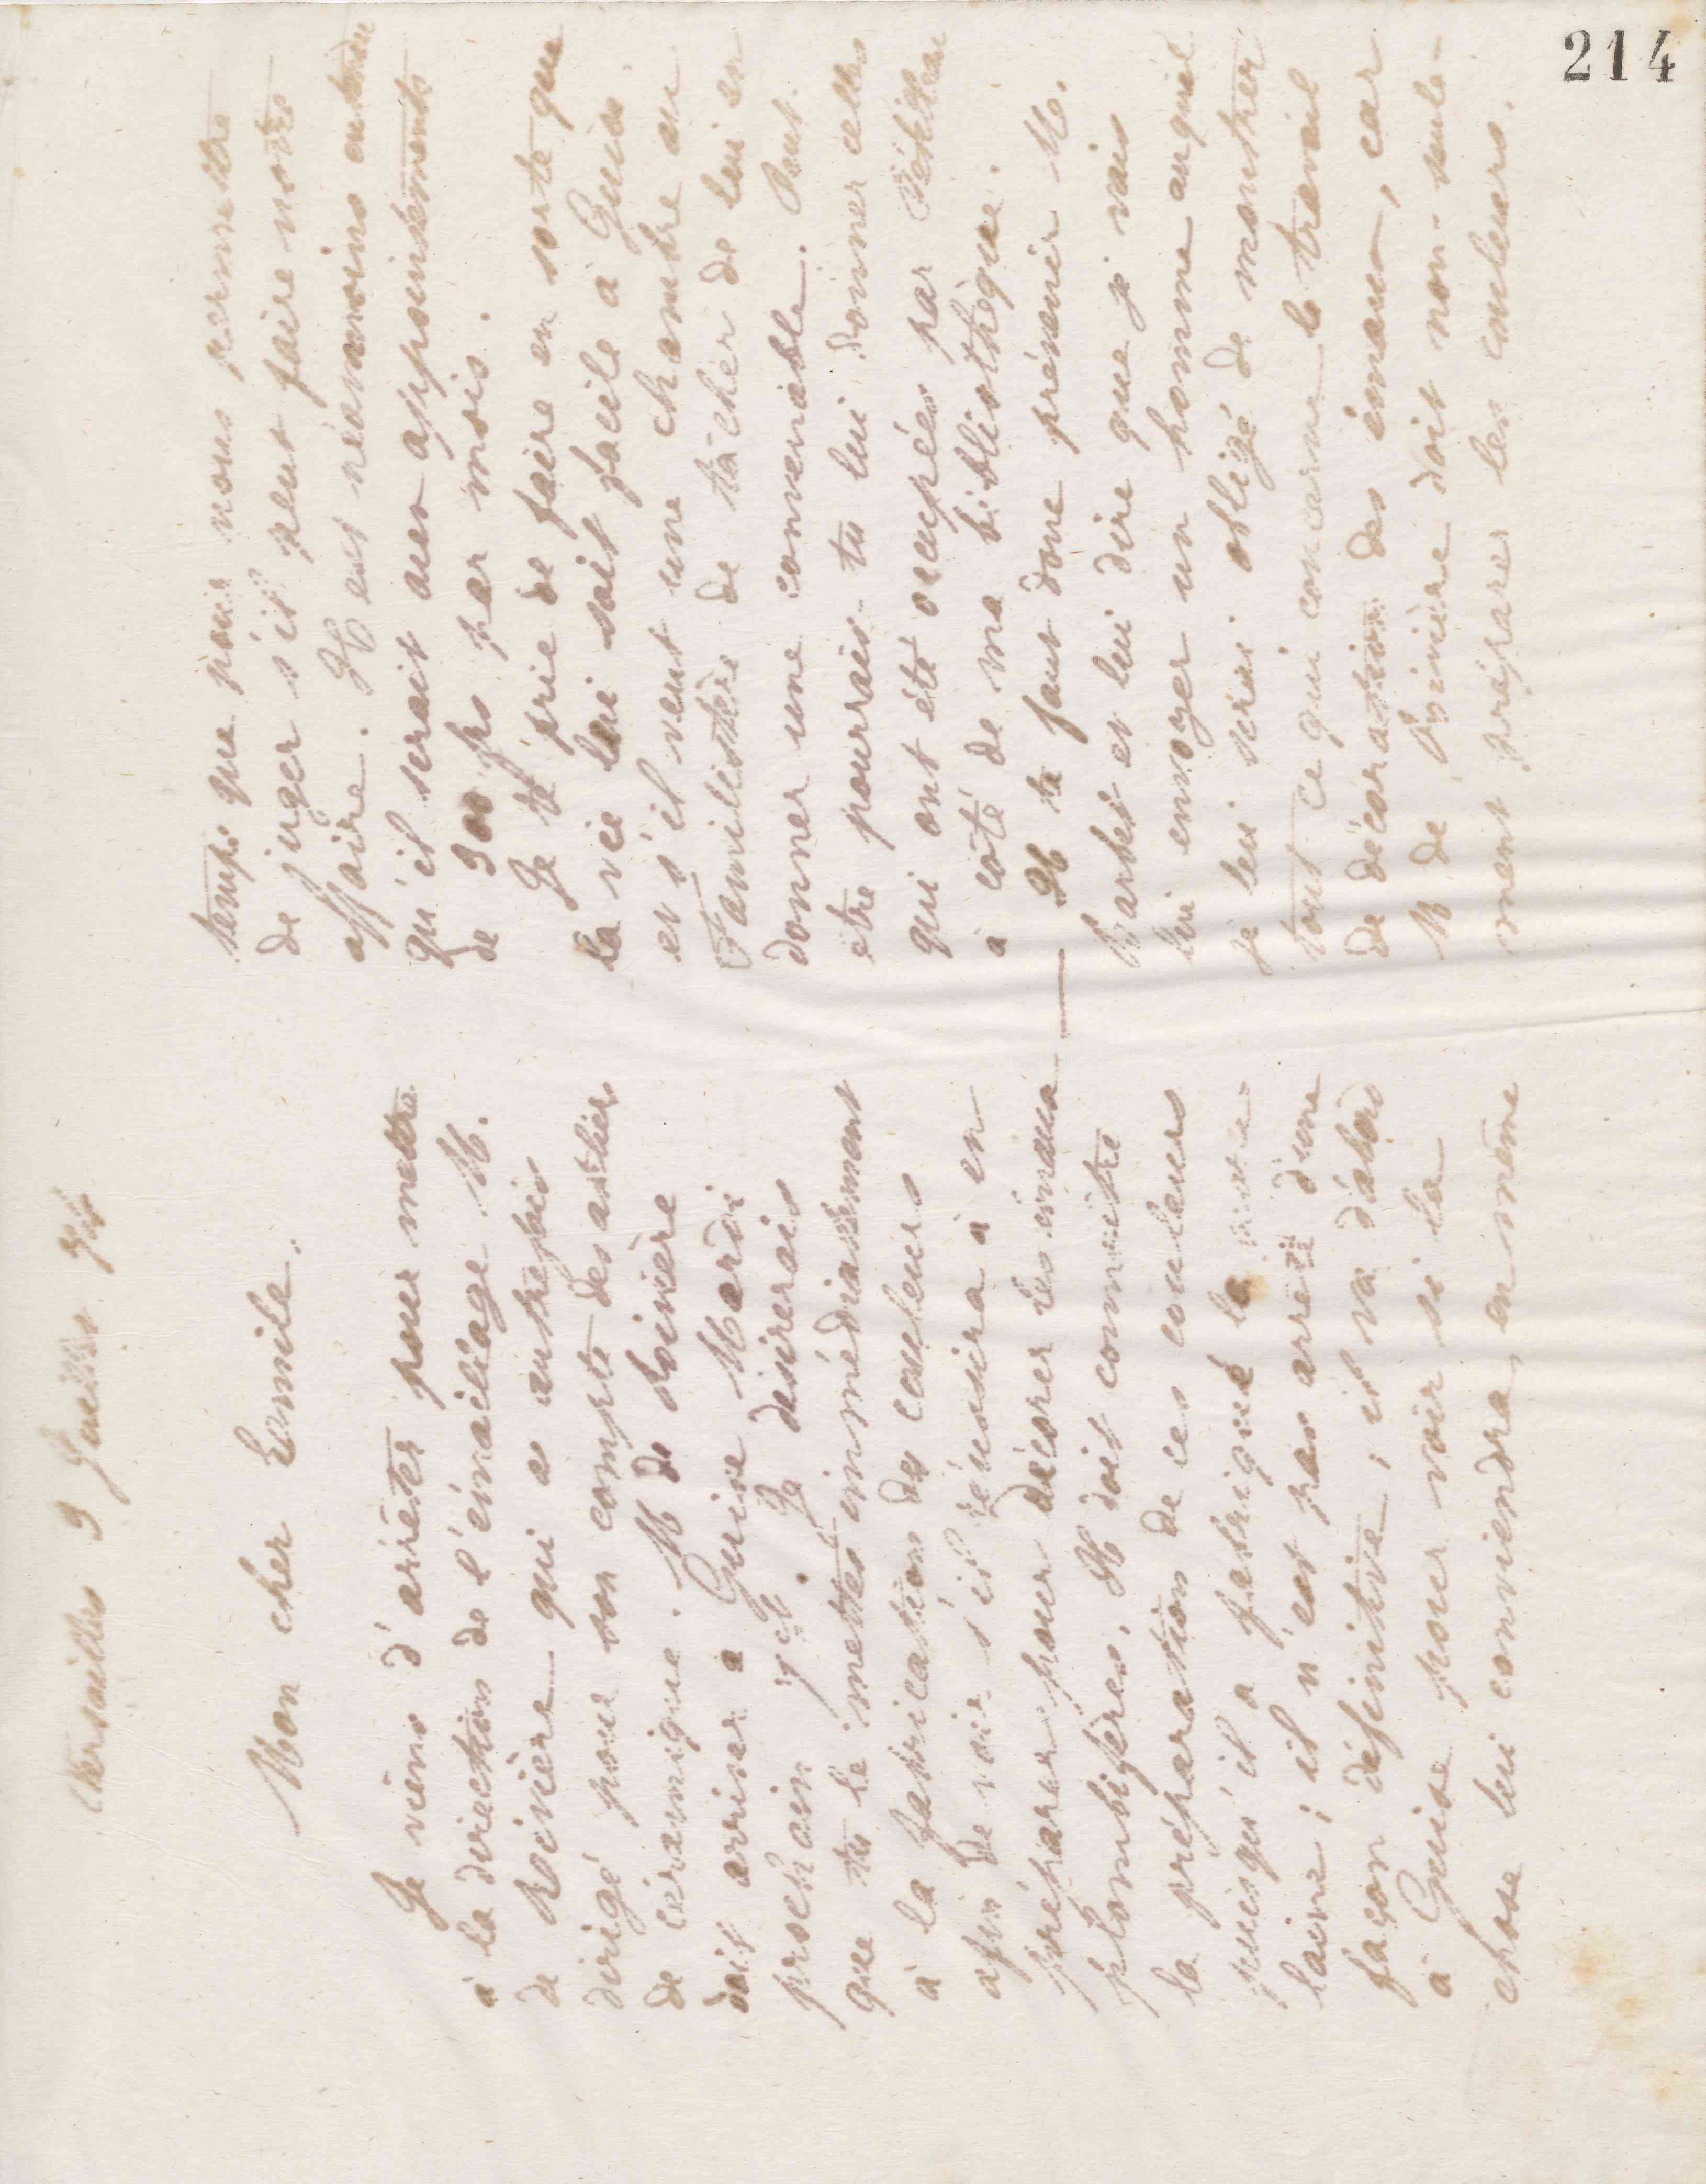 214
Versailles 9 Juillet 74
Mon cher Emile.
Je viens d'arrêter pour mettre
à la direction de l'émaillage M.
de Boinière qui a autrefois
dirigé pour son compte des ateliers
de céramique. M de Boinière
doit arriver à Guise Mardi
prochain Je désirerais
que tu le mettes immédiatement
à la fabrication des couleurs
afin de voir s'il réussira à en
préparer pour décorer les émaux
plombifères. Il doit connaître
la préparation de ces couleurs
puisqu'il a fabriqué la
laine ; il n'est pas arrêté d'une
façon définitive ; il va d'abord
à Guise pour voir si la
chose lui conviendra, en même
temps que pour nous permettre
de juger s'il peut faire notre
affaire. Il est néanmoins entendu
qu'il serait aux appointements
de 300 fs par mois.
Je te prie de faire en sorte que
la vie lui soit facile à Guise
et s'il veut une chambre au
Familistère de tâcher de lui en
donner une convenable. Peut
être pourrais-tu lui donner celles
qui ont été occupées par
à côté de ma bibliothèque.
Il te faut donc prévenir M.
Barbet et lui dire que je vais
lui envoyer un homme auquel
je lui serai obligé de montrer
tout ce qui concerne le travail
de décoration des émaux, car
M de Boinière doit non-seule-
ment préparer les couleurs.